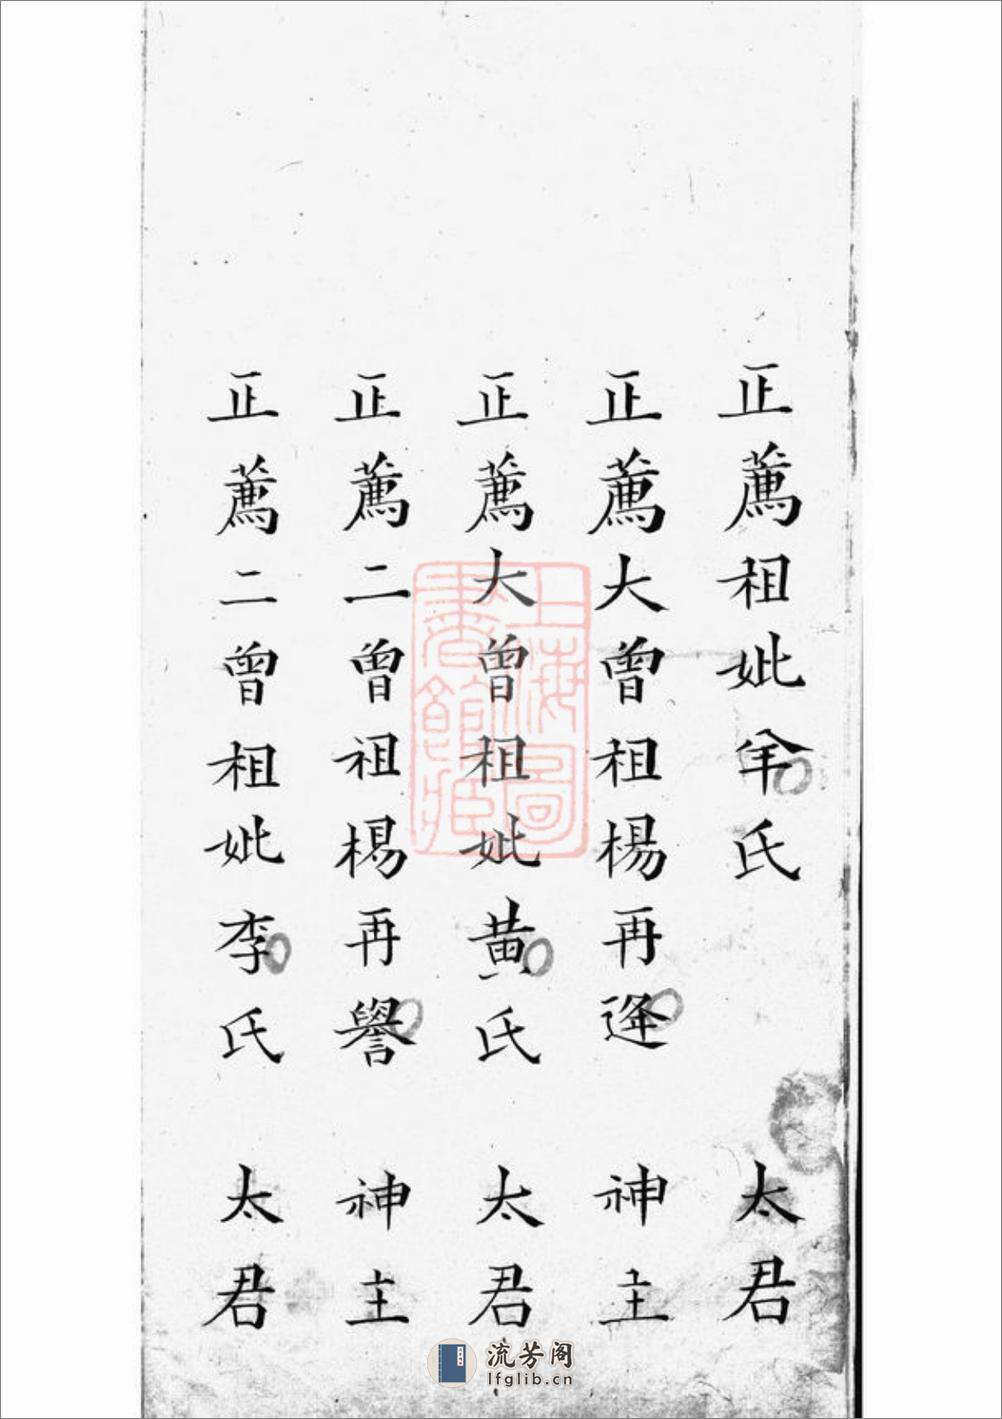 正薦祖妣氏 太君
正薦大曾祖楊再逢 神主
正薦大曾祖妣黃氏 太君
正薦二曾祖楊再譽 神主
正薦二曾祖妣李氏 太君
上海圖
書館藏
流芳阁
lfglib.cn